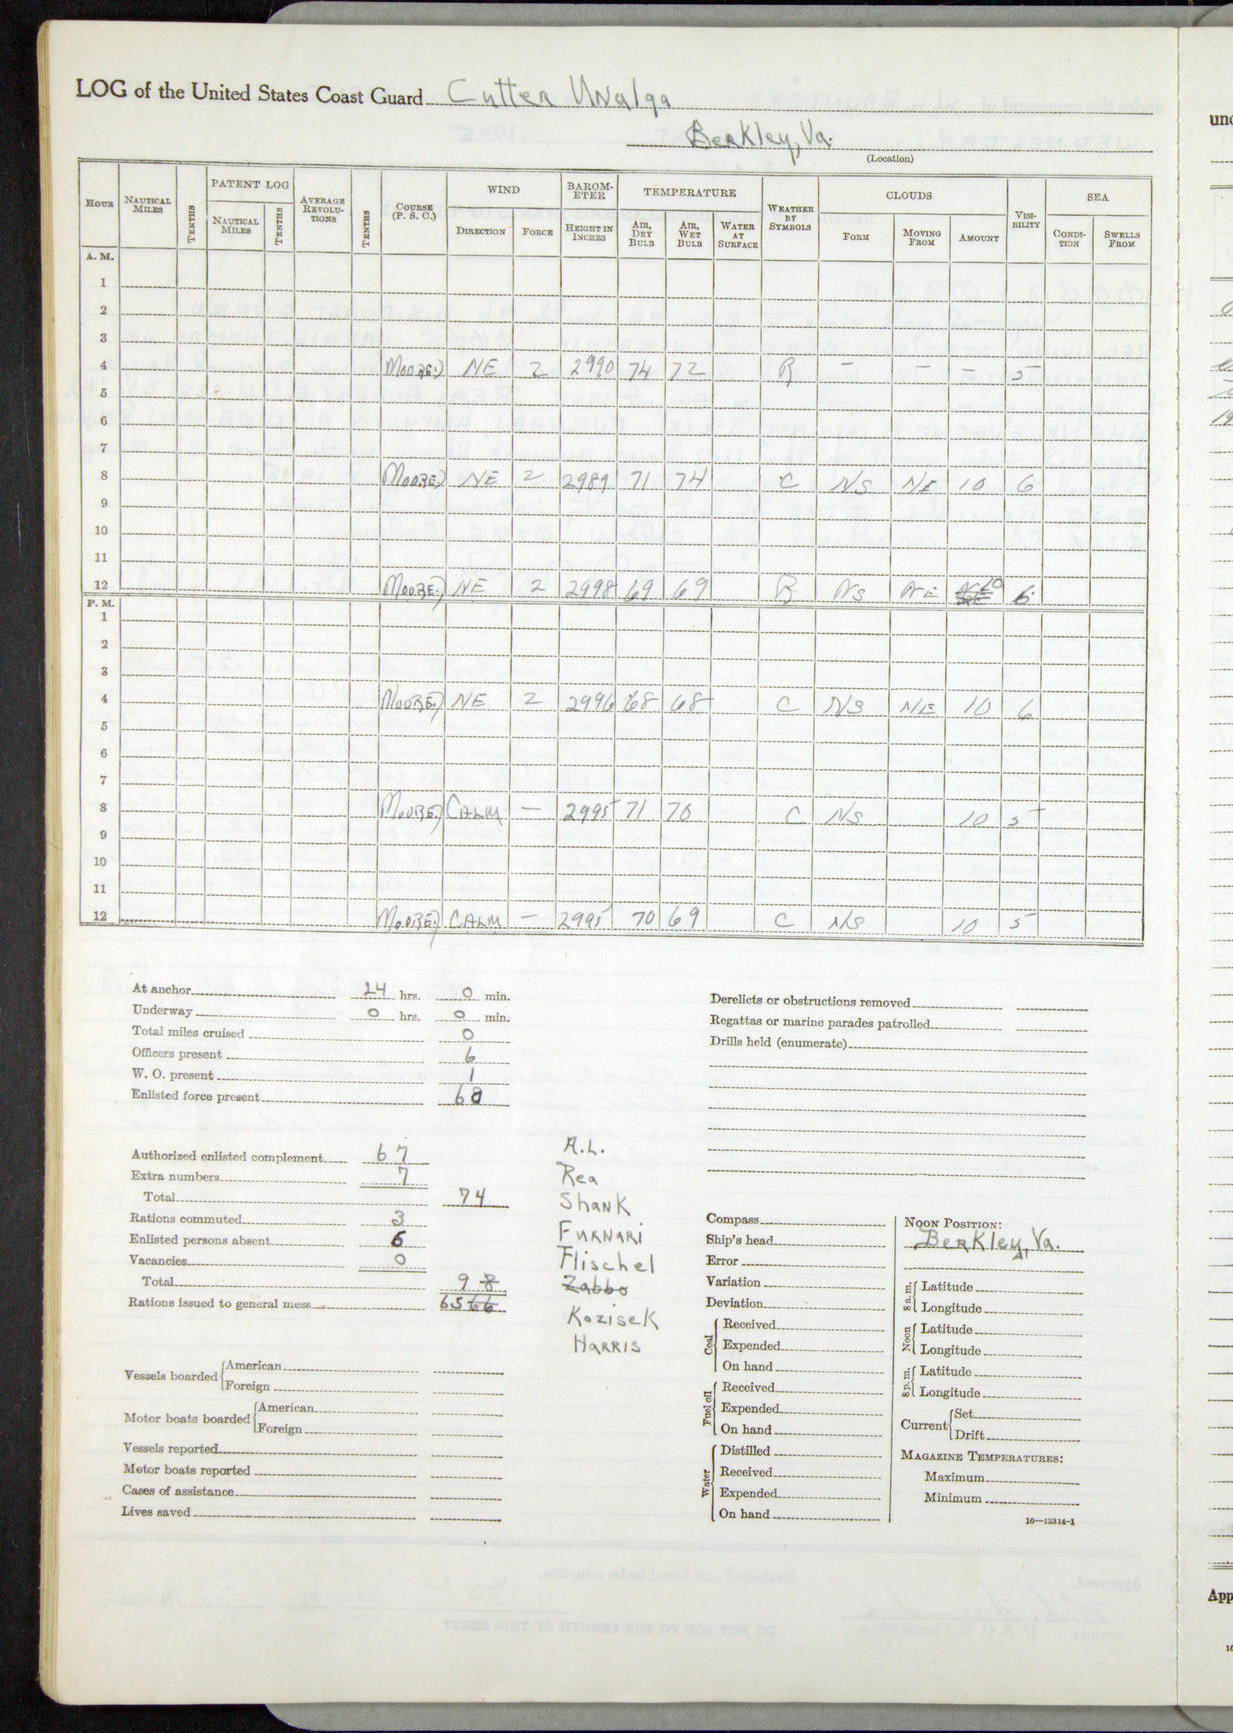 LOG of the United States Coast Guard Cutter Unalga
Berkley, Va.
(Location)
HOUR NAUTICAL MILES TENTHS PATENT LOG NAUTICAL MILES TENTHS AVERAGE REVOLUTIONS TENTHS COURSE (P. S. C.) WIND DIRECTION FORCE BAROMETER HEIGHT IN INCHES TEMPERATURE AIR, DRY BULB AIR, WET BULB WATER AT SURFACE WEATHER BY SYMBOLS CLOUDS FORM MOVING FROM AMOUNT VISIBILITY SEA CONDITION SWELLS FROM
A. M.
1
2
3
4 MOORED NE 2 2990 74 72 R – – – 5
5
6
7
8 MOORED NE 2 2989 71 74 C NS NE 10 6
9
10
11
12 MOORED NE 2 2998 69 69 R NS NE 10 6
P. M.
1
2
3
4 MOORED NE 2 2996 68 68 C NS NE 10 6
5
6
7
8 MOORED CALM – 2995 71 70 C NS 10 5
9
10
11
12 MOORED CALM – 2995 70 69 C NS 10 5
At anchor 24 hrs. 0 min.
Underway 0 hrs. 0 min.
Total miles cruised 0
Officers present 6
W. O. present 1
Enlisted force present 68
Authorized enlisted complement 67
Extra numbers 7
Total 74
Rations commuted 3
Enlisted persons absent 6
Vacancies 0
Total 9 8
Rations issued to general mess 65 66
A.L.
Rea
Shank
Furnari
Flischel
Zabbo
Kozisek
Harris
Vessels boarded American
Foreign
Motor boats boarded American
Foreign
Vessels reported
Motor boats reported
Cases of assistance
Lives saved
Derelicts or obstructions removed
Regattas or marine parades patrolled
Drills held (enumerate)
Compass
Ship's head
Error
Variation
Deviation
Coal Received
Expended
On hand
Fuel oil Received
Expended
On hand
Water Distilled
Received
Expended
On hand
NOON POSITION:
Berkley, Va.
8 a.m. Latitude
Longitude
Noon Latitude
Longitude
8 p.m. Latitude
Longitude
Current Set
Drift
MAGAZINE TEMPERATURES:
Maximum
Minimum
16—13314-1